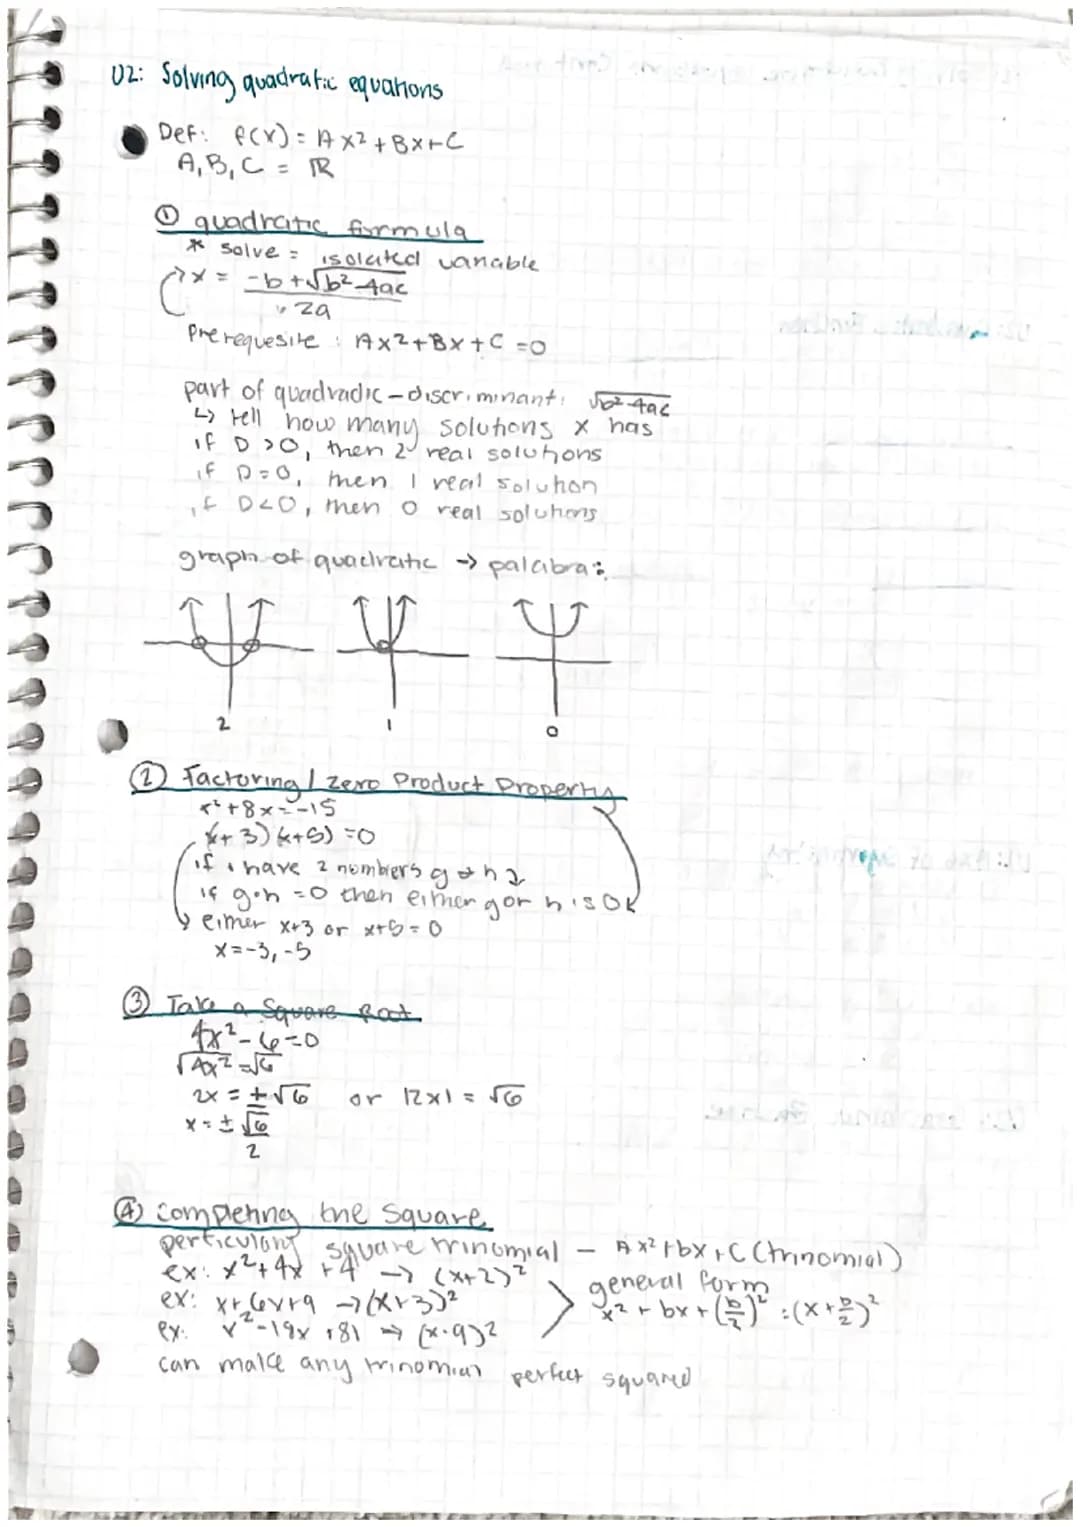 U2: Solving quadratic equations
Def: f(x) = Ax² + Bx + C
A, B, C = ℝ
① quadratic formula
* solve = isolated variable
x = -b + √b²-4ac
2a
Prerequesite : Ax² + Bx + C = 0
part of quadradic - discriminant: √b²-4ac
↳ tell how many solutions x has
if D > 0, then 2 real solutions
if D = 0, then 1 real solution
if D < 0, then 0 real solutions
graph of quadratic → palabra:
2 1 0
② Factoring / Zero Product Property
x² + 8x = -15
(x+3)(x+5) = 0
if i have 2 numbers g + h
if g·h = 0 then either g or h is OK
either x+3 or x+5 = 0
x = -3, -5
③ Take a Square Root
4x² - 6 = 0
√4x² = √6
2x = ± √6 or |2x| = √6
x = ± √6
2
④ Completing the Square
square trinomial - Ax² + bx + C (trinomial)
ex: x² + 4x + 4 → (x+2)²
general form
ex: x + 6x + 9 → (x+3)²
x² + bx + (b/2)² = (x + b/2)²
ex: x² - 18x + 81 → (x-9)²
can make any trinomial perfect squared